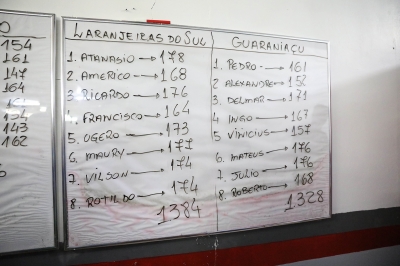 154
161
147
164
154
143
162
LARANJEIRAS DO SUL
1. ATANASIO → 178
2. AMERICO → 168
3. RICARDO → 176
4. FRANCISCO → 164
5. UGERO → 173
6. MAURY → 177
7. VILSON → 174
8. ROTILDO → 174
1384
GUARANIAÇU
1. PEDRO → 161
2. ALEXANDRE → 152
3. DELMAR → 171
4. INGO → 167
5. VINICIUS → 157
6. MATEUS → 176
7. JULIO → 176
8. ROBERTO → 168
1328